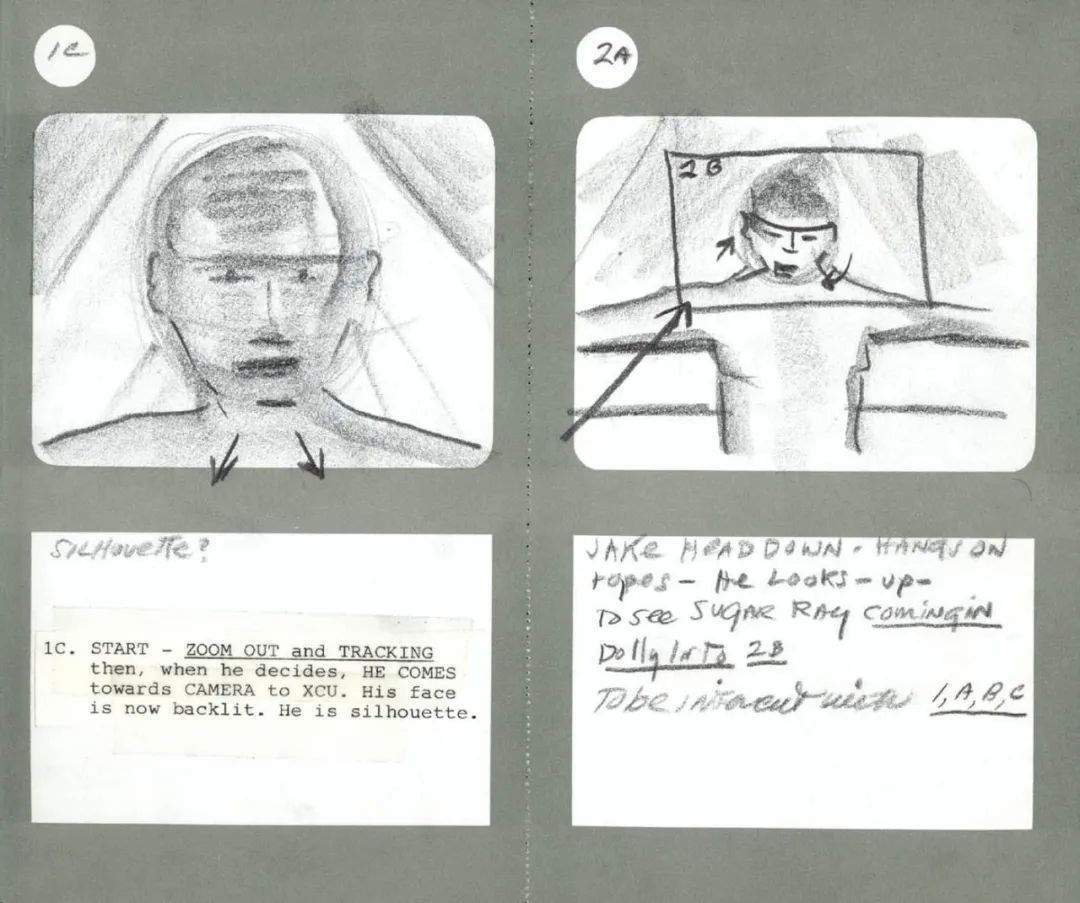 1C
Silhouette?
1C. START - ZOOM OUT and TRACKING
then, when he decides, HE COMES
towards CAMERA to XCU. His face
is now backlit. He is silhouette.
2A
2B
JAKE HEAD DOWN - HANGS ON
ropes - He Looks - up -
To see SUGAR RAY coming in
Dolly In To 2B
To be intercut with 1, A, B, C